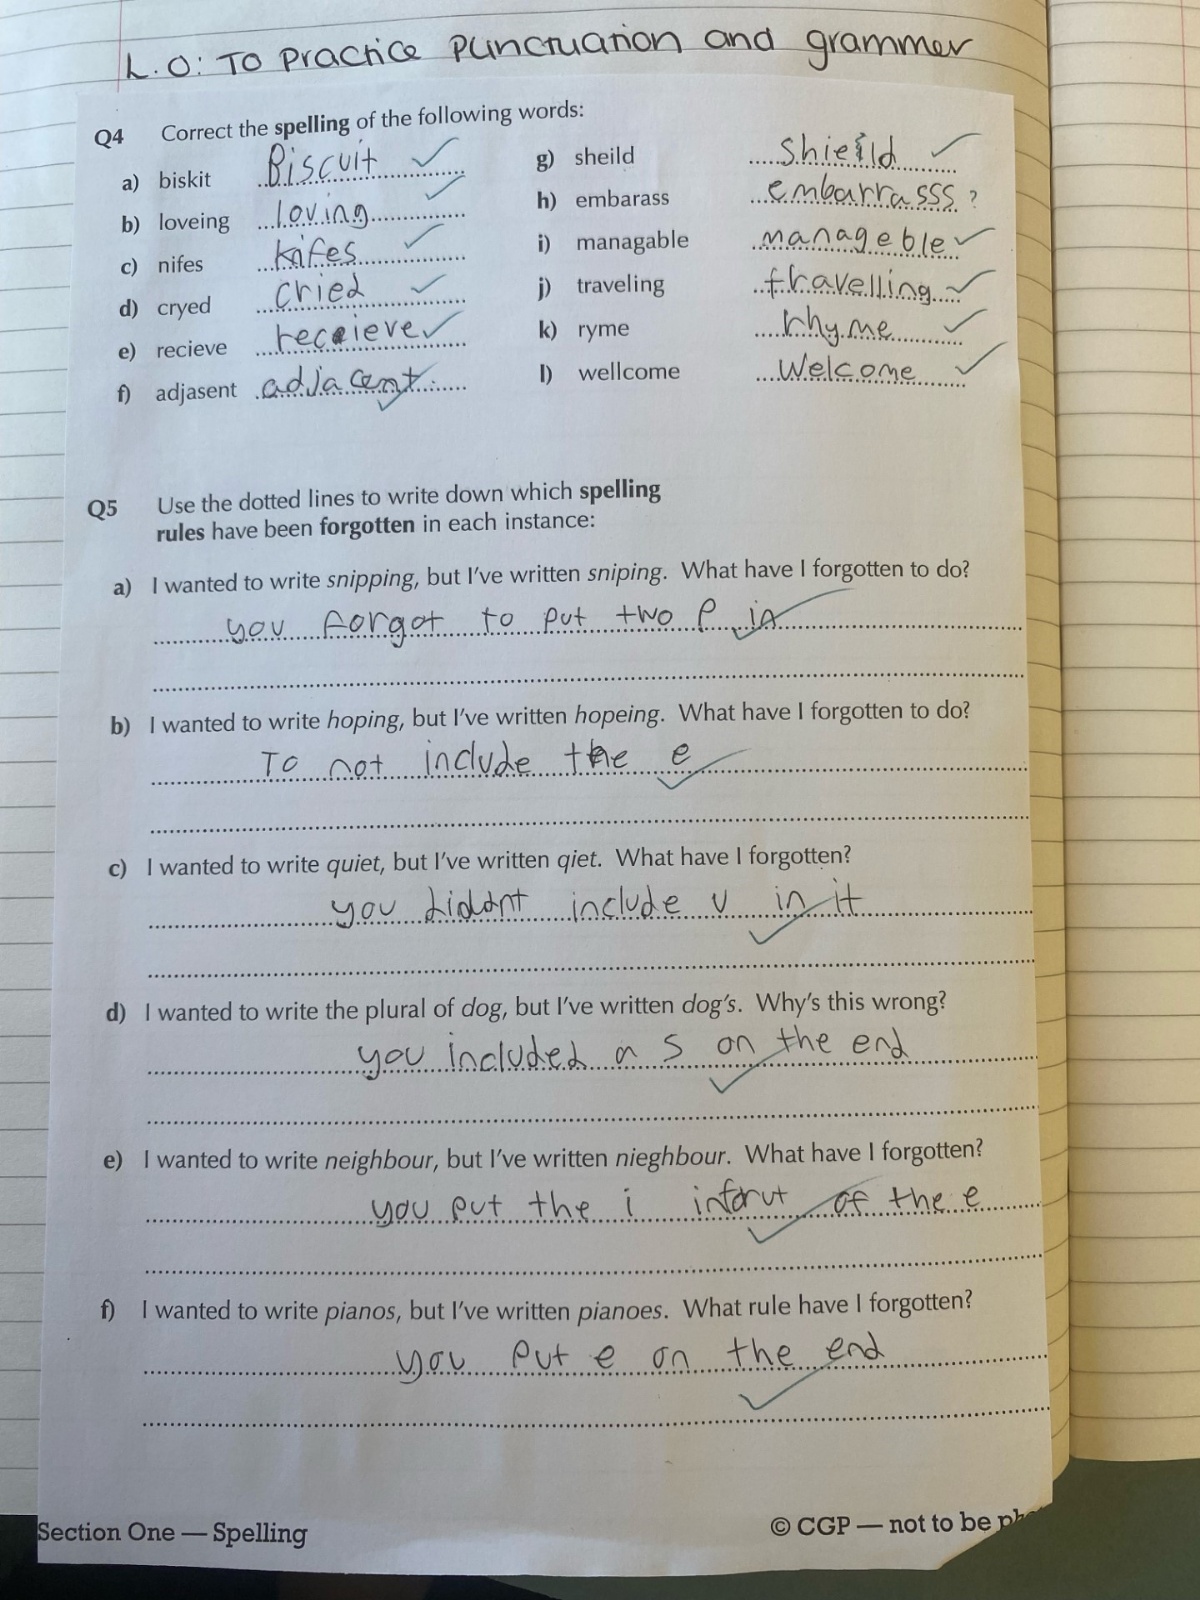 L.O: To practice punctuation and grammer
Q4 Correct the spelling of the following words:
a) biskit Biscuit
b) loveing loving
c) nifes knifes
d) cryed cried
e) recieve receieve
f) adjasent adjacent
g) sheild shieild
h) embarass embarrasss ?
i) managable manageble
j) traveling travelling
k) ryme rhyme
l) wellcome Welcome
Q5 Use the dotted lines to write down which spelling
rules have been forgotten in each instance:
a) I wanted to write snipping, but I've written sniping. What have I forgotten to do?
you forgot to put two P in
b) I wanted to write hoping, but I've written hopeing. What have I forgotten to do?
To not include the e
c) I wanted to write quiet, but I've written qiet. What have I forgotten?
you include u in it
d) I wanted to write the plural of dog, but I've written dog's. Why's this wrong?
you included a s on the end
e) I wanted to write neighbour, but I've written nieghbour. What have I forgotten?
you put the i of the e
f) I wanted to write pianos, but I've written pianoes. What rule have I forgotten?
you put e on the end
Section One — Spelling
© CGP — not to be